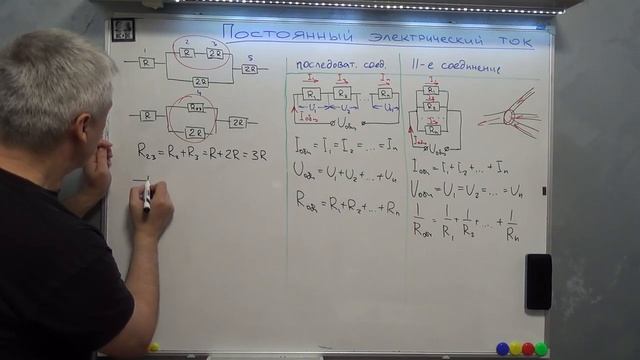 Постоянный электрический ток
1 2 3 5
R R 2R 2R
2R
4
R R₂₃ 2R
2R
R₂₃ = R₂ + R₃ = R + 2R = 3R
последоват. соед.
I₁ I₂ Iₙ
R₁ R₂ ... Rₙ
U₁ U₂ ... Uₙ
Iобщ Uобщ
Iобщ = I₁ = I₂ = ... = Iₙ
Uобщ = U₁ + U₂ + ... + Uₙ
Rобщ = R₁ + R₂ + ... + Rₙ
||-е соединение
I₁
R₁
R₂
Rₙ
Iобщ Uобщ
Iобщ = I₁ + I₂ + ... + Iₙ
Uобщ = U₁ = U₂ = ... = Uₙ
1/Rобщ = 1/R₁ + 1/R₂ + ... + 1/Rₙ